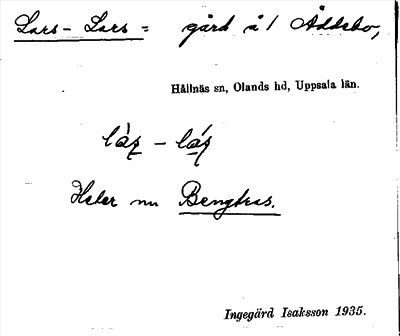 Lars-Lars = gård å / Åddebo,
Hållnäs sn, Olands hd, Uppsala län.
Heter nu Bengtas.
Ingegärd Isaksson 1935.